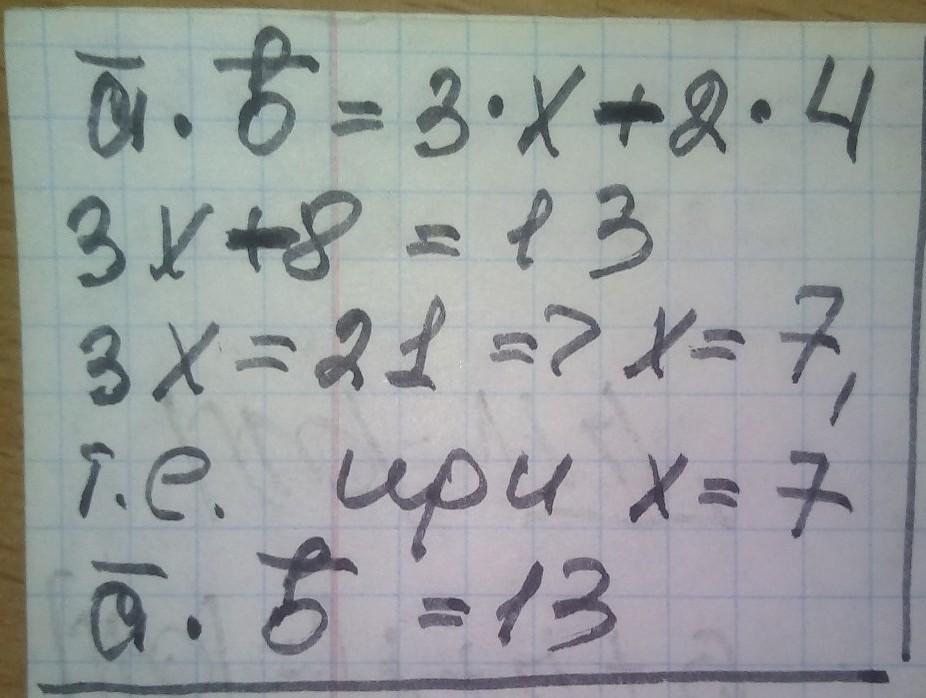 a̅ · b̅ = 3 · x + 2 · 4
3x + 8 = 13
3x = 21 => x = 7,
т.е. при x = 7
a̅ · b̅ = 13